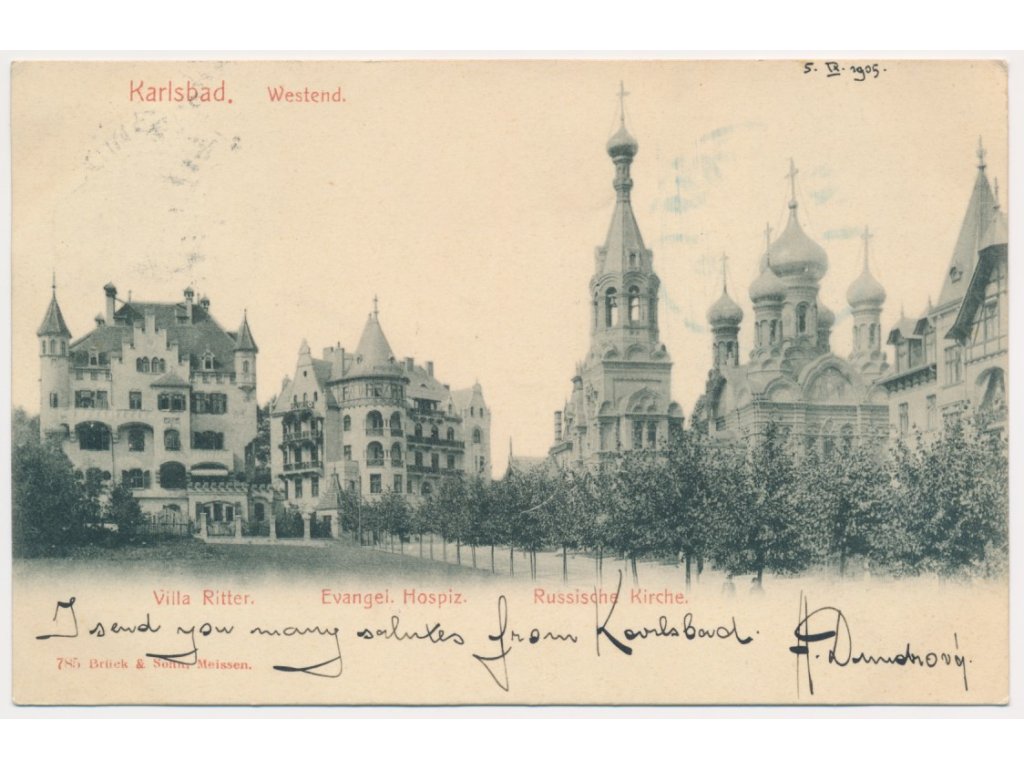 5. IX. 1905.
Karlsbad. Westend.
Villa Ritter. Evangel. Hospiz. Russische Kirche.
I send you many salutes from Karlsbad.
785 Brück & Sohn, Meissen.